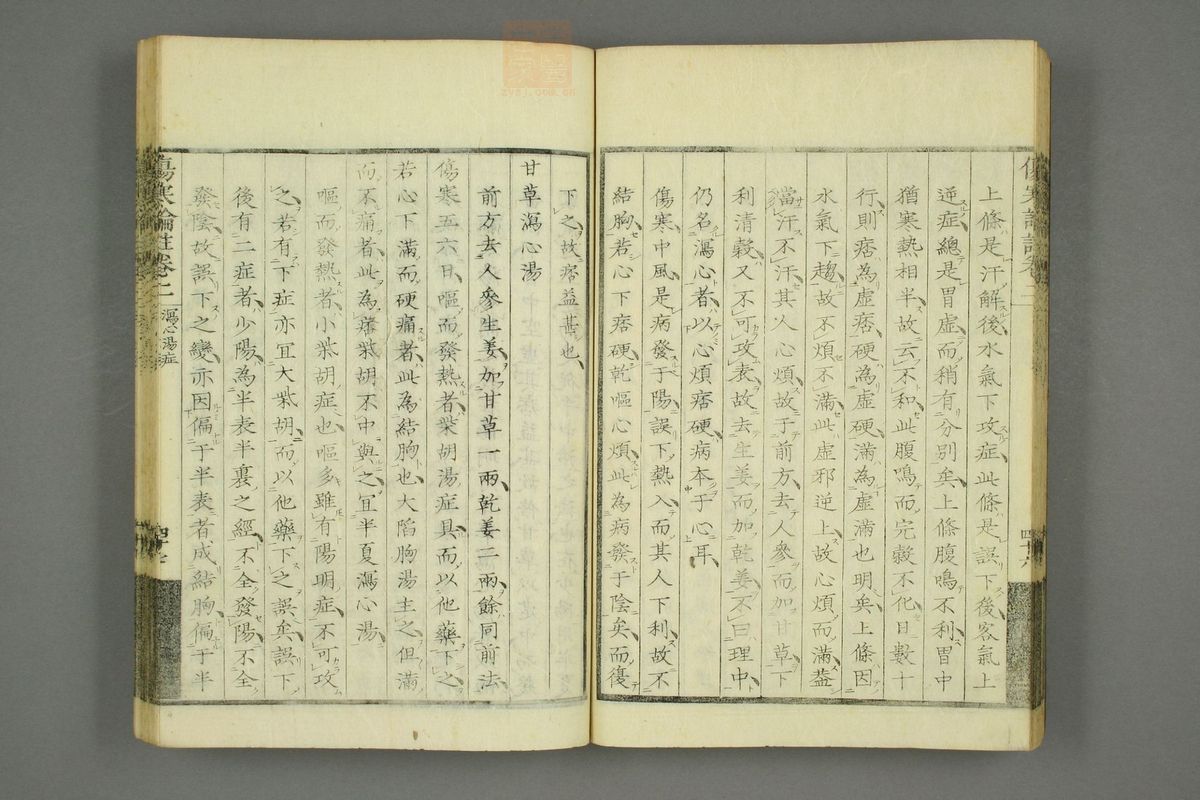 上條是汗解後水氣下攻症此條是誤下後客氣上
逆症總是胃虛而稍有分別矣上條腹鳴不利胃中
猶寒熱相半故云不和此腹鳴而完穀不化日數十
行則痞為虛痞硬為虛硬滿為虛滿也明矣上條因
水氣下趨故不煩不滿此虛邪逆上故心煩而滿蓋
當汗不汗其人心煩故于前方去人參而加甘草下
利清穀又不可攻表故去生姜而加乾姜不曰理中
仍名瀉心者以心煩痞硬病本于心耳
傷寒中風是病發于陽誤下熱入而其人下利故不
結胸若心下痞硬乾嘔心煩此為病發于陰矣而復
下之故痞益甚也
甘草瀉心湯
前方去人參生姜加甘草一兩乾姜二兩餘同前法
傷寒五六日嘔而發熱者柴胡湯症具而以他藥下之
若心下滿而硬痛者此為結胸也大陷胸湯主之但滿
而不痛者此為痞柴胡不中與之冝半夏瀉心湯
嘔而發熱者小柴胡症也嘔多雖有陽明症不可攻
之若有下症亦冝大柴胡而以他藥下之誤矣誤下
後有二症者少陽為半表半裏之經不全發陽不全
發陰故誤下之變亦因偏于半表者成結胸偏于半
傷寒論註卷二
瀉心湯症
四十七
傷寒論註卷二
四十六